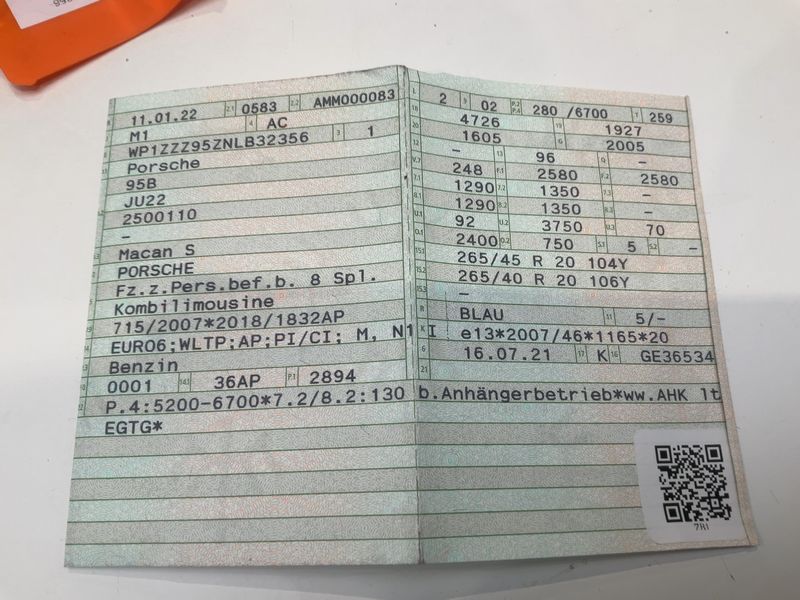 11.01.22 2.1 0583 2.2 AMM000083
M1 4 AC
WP1ZZZ95ZNLB32356 3 1
Porsche
95B
JU22
2500110
–
Macan S
PORSCHE
Fz.z.Pers.bef.b. 8 Spl.
Kombilimousine
715/2007*2018/1832AP
EURO6;WLTP;AP;PI/CI; M, N1 I
Benzin
0001 14.1 36AP P.1 2894
P.4:5200-6700*7.2/8.2:130 b.Anhängerbetrieb*ww.AHK lt
EGTG*
L 2 9 02 P.2 P.4 280 /6700 T 259
18 4726 19 1927
20 1605 G 2005
12 – 13 96 Q –
V.7 248 F.1 2580 F.2 2580
7.1 1290 7.2 1350 7.3 –
8.1 1290 8.2 1350 8.3 –
U.1 92 U.2 3750 U.3 70
O.1 2400 O.2 750 S.1 5 S.2 –
15.1 265/45 R 20 104Y
15.2 265/40 R 20 106Y
15.3 –
R BLAU 11 5/–
K e13*2007/46*1165*20
6 16.07.21 17 K 16 GE36534
21
7RI